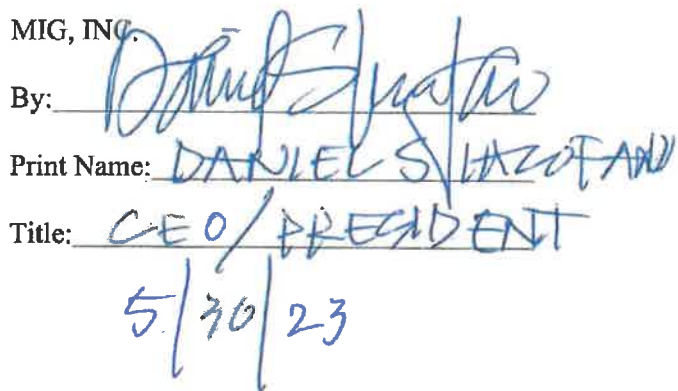 MIG, INC.
By:
Print Name: DANIEL S IACOFANO
Title: CEO / PRESIDENT
5/30/23